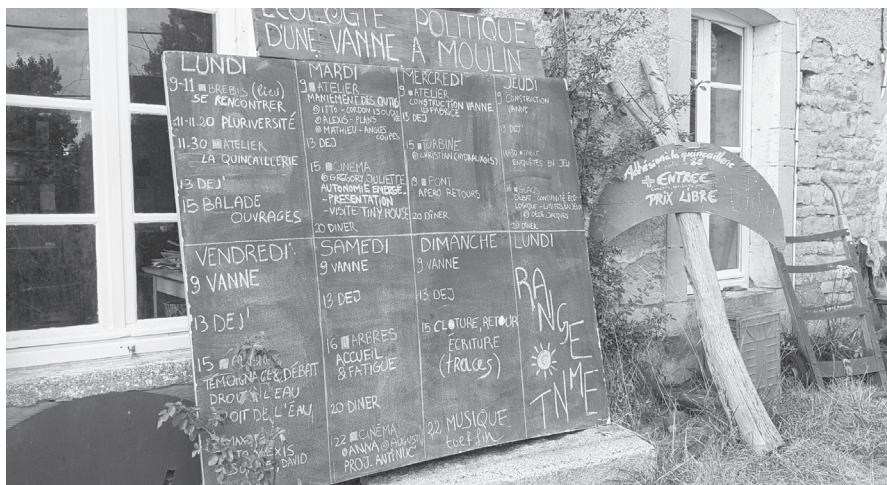 ÉCOLOGIE POLITIQUE
D'UNE VANNE À MOULIN
LUNDI
9-11 BREBIS (lieu)
SE RENCONTRER
11-11.20 PLURIVERSITÉ
11.30 ATELIER
LA QUINCAILLERIE
13 DEJ'
15 BALADE
OUVRAGES
MARDI
9 ATELIER
MANIEMENT DES OUTILS
@ ALEXIS - PLANS
@ MATHIEU - ANGLES
COUPES
13 DEJ
15 CINEMA
@ GREGORY, JULIETTE
AUTONOMIE ENERGE.
- PRESENTATION
- VISITE TINY HOUSE
20 DINER
MERCREDI
9 ATELIER
CONSTRUCTION VANNE
@ FABRICE
13 DEJ
15 TURBINE
@ CHRISTIAN
19 PONT
APERO RETOURS
20 DÎNER
JEUDI
9 CONSTRUCTION
VANNE
13 DEJ'
ENQUÊTES EN JEU
20 DINER
VENDREDI
9 VANNE
13 DEJ'
15
TEMOIGNAGE & DÉBAT
DROIT À L'EAU
DROIT DE L'EAU
DAVID
SAMEDI
9 VANNE
13 DEJ
16 ARBRES
ACCUEIL
& FATIGUE
20 DINER
22 CINÉMA
@ ANNA @ AUGUSTIN
PROJ. ANTINUC
DIMANCHE
9 VANNE
13 DEJ
15 CLOTURE, RETOUR
ÉCRITURE
(traces)
22 MUSIQUE
LUNDI
RANGE
TNME
Adhésion à la quincaillerie
ENTRÉE
PRIX LIBRE